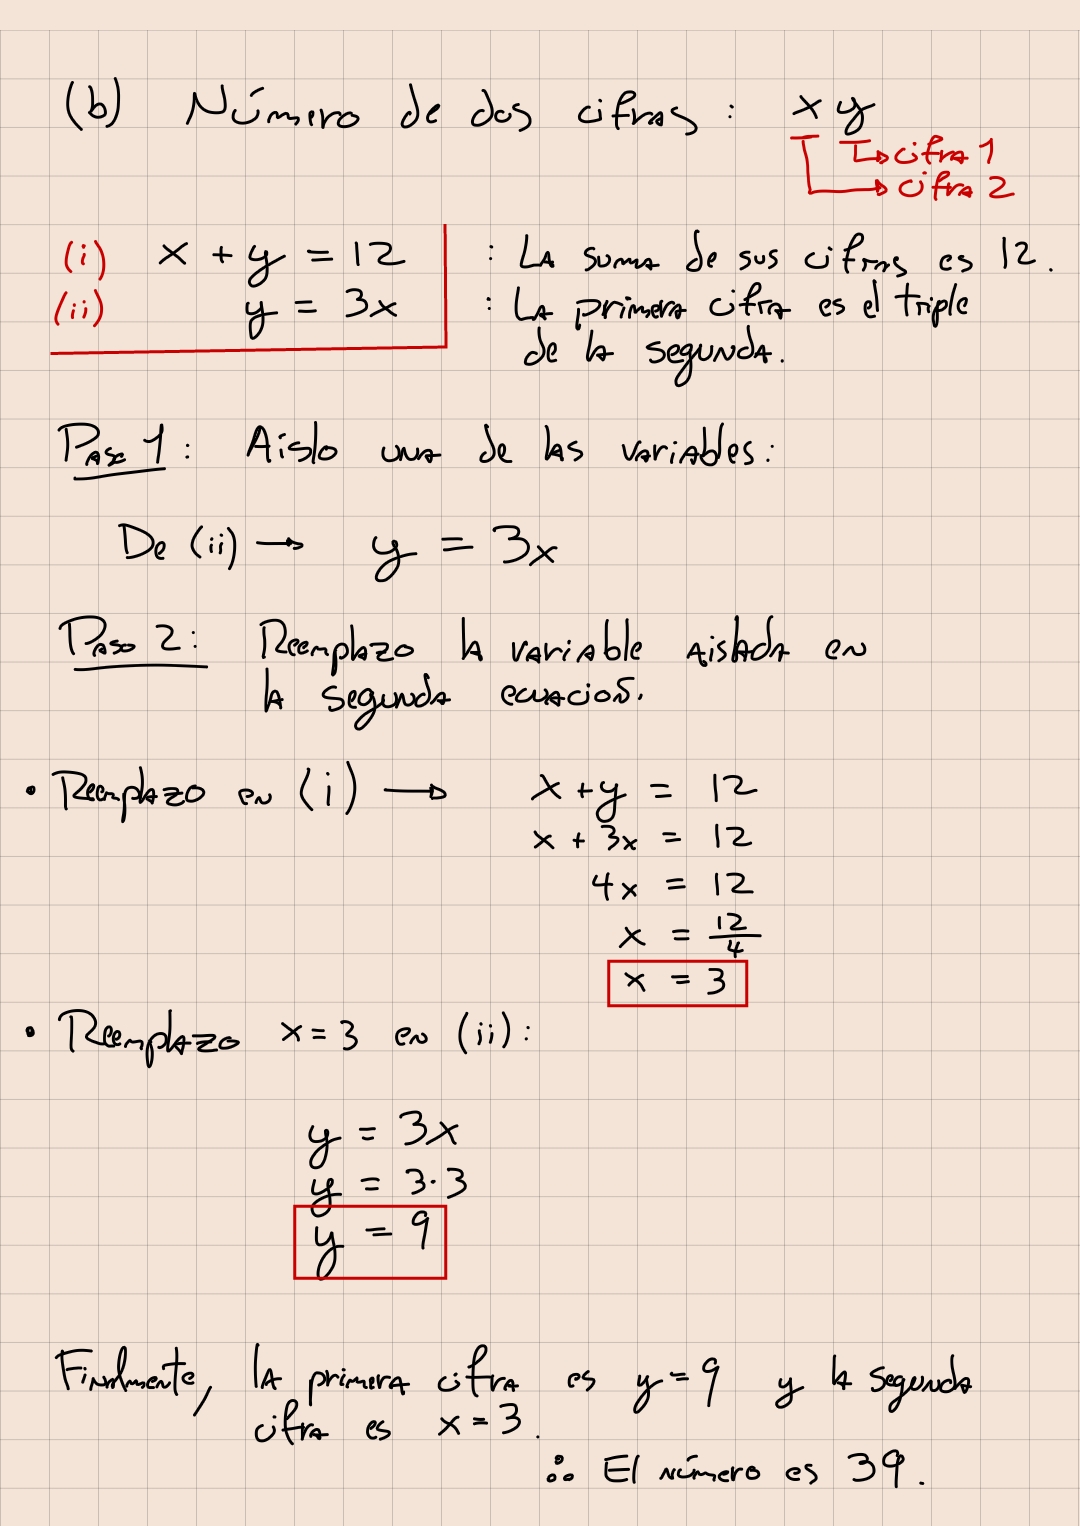 (b) Número de dos cifras : xy
cifra 1
cifra 2
(i) x + y = 12 : La suma de sus cifras es 12.
(ii) y = 3x : La primera cifra es el triple
de la segunda.
Paso 1 : Aislo una de las variables :
De (ii) → y = 3x
Paso 2 : Reemplazo la variable aislada en
la segunda ecuación.
• Reemplazo en (i) → x + y = 12
x + 3x = 12
4x = 12
x = 12/4
x = 3
• Reemplazo x = 3 en (ii) :
y = 3x
y = 3·3
y = 9
Finalmente, la primera cifra es y = 9 y la segunda
cifra es x = 3.
∴ El número es 39.